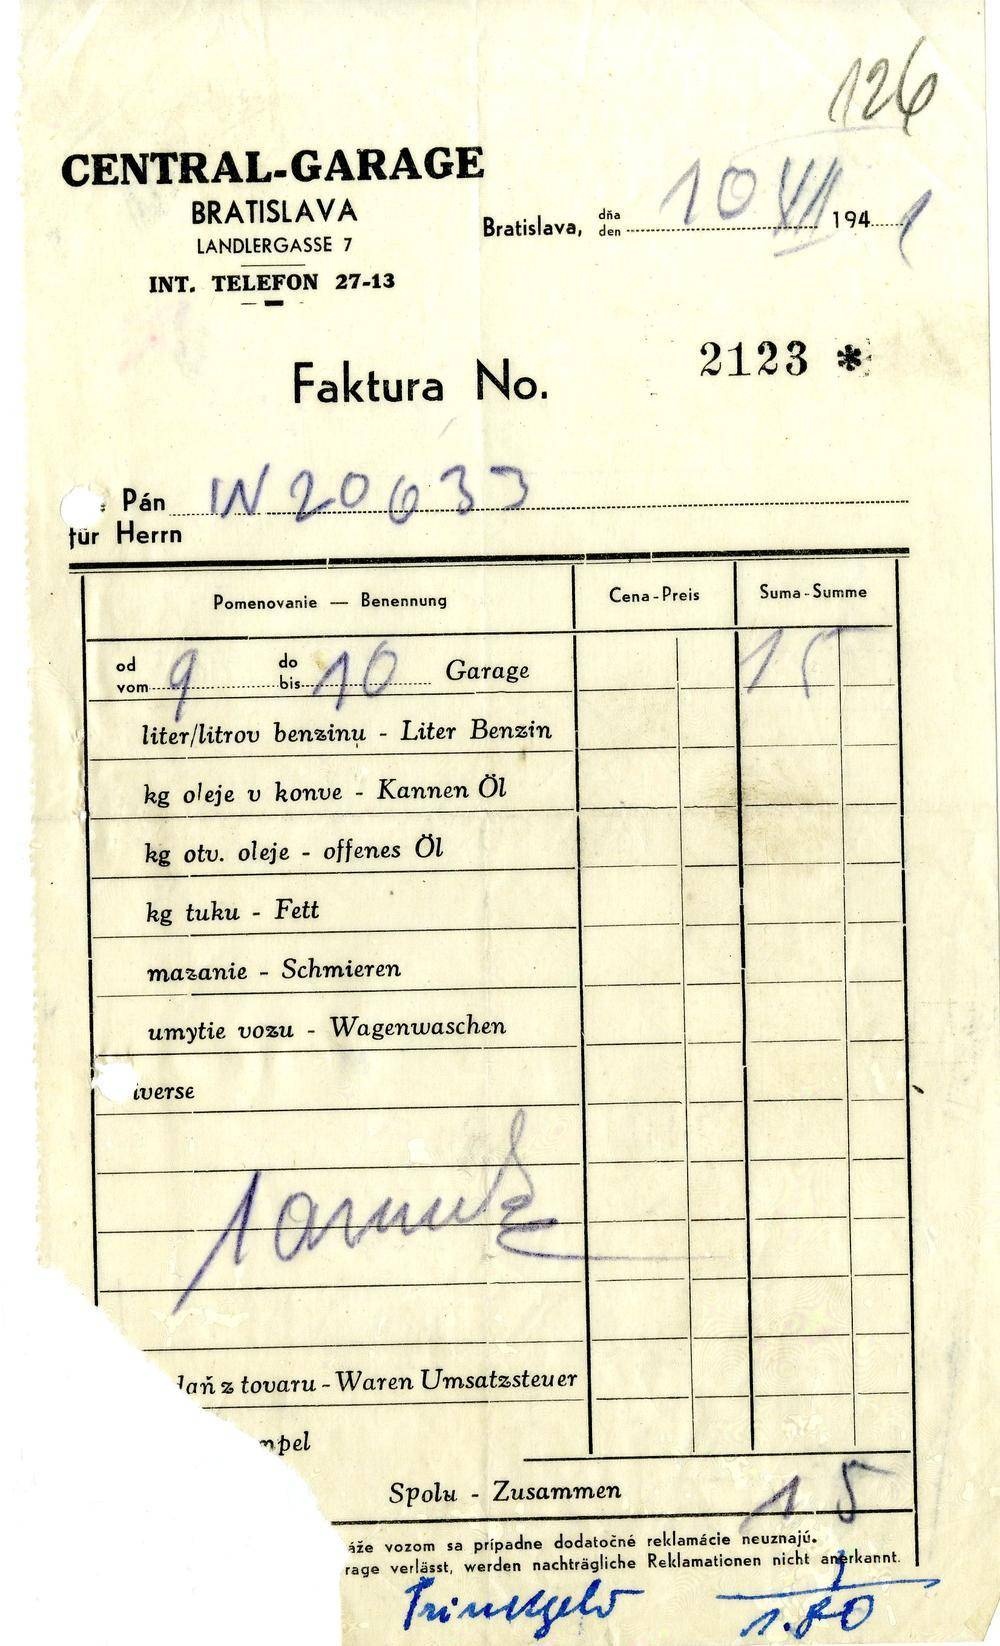 126
CENTRAL-GARAGE
BRATISLAVA
LANDLERGASSE 7
INT. TELEFON 27-13
Bratislava, dňa den 10 XII 1941
Faktura No. 2123 *
Pán IN 20633
für Herrn
Pomenovanie — Benennung Cena-Preis Suma-Summe
od vom 9 do bis 10 Garage 15
liter/litrov benzinu - Liter Benzin
kg oleje v konve - Kannen Öl
kg otv. oleje - offenes Öl
kg tuku - Fett
mazanie - Schmieren
umytie vozu - Wagenwaschen
iverse
daň z tovaru - Waren Umsatzsteuer
mpel
Spolu - Zusammen 15
áže vozom sa prípadne dodatočné reklamácie neuznajú.
rage verlässt, werden nachträgliche Reklamationen nicht anerkannt.
Trinkgeld 1.80